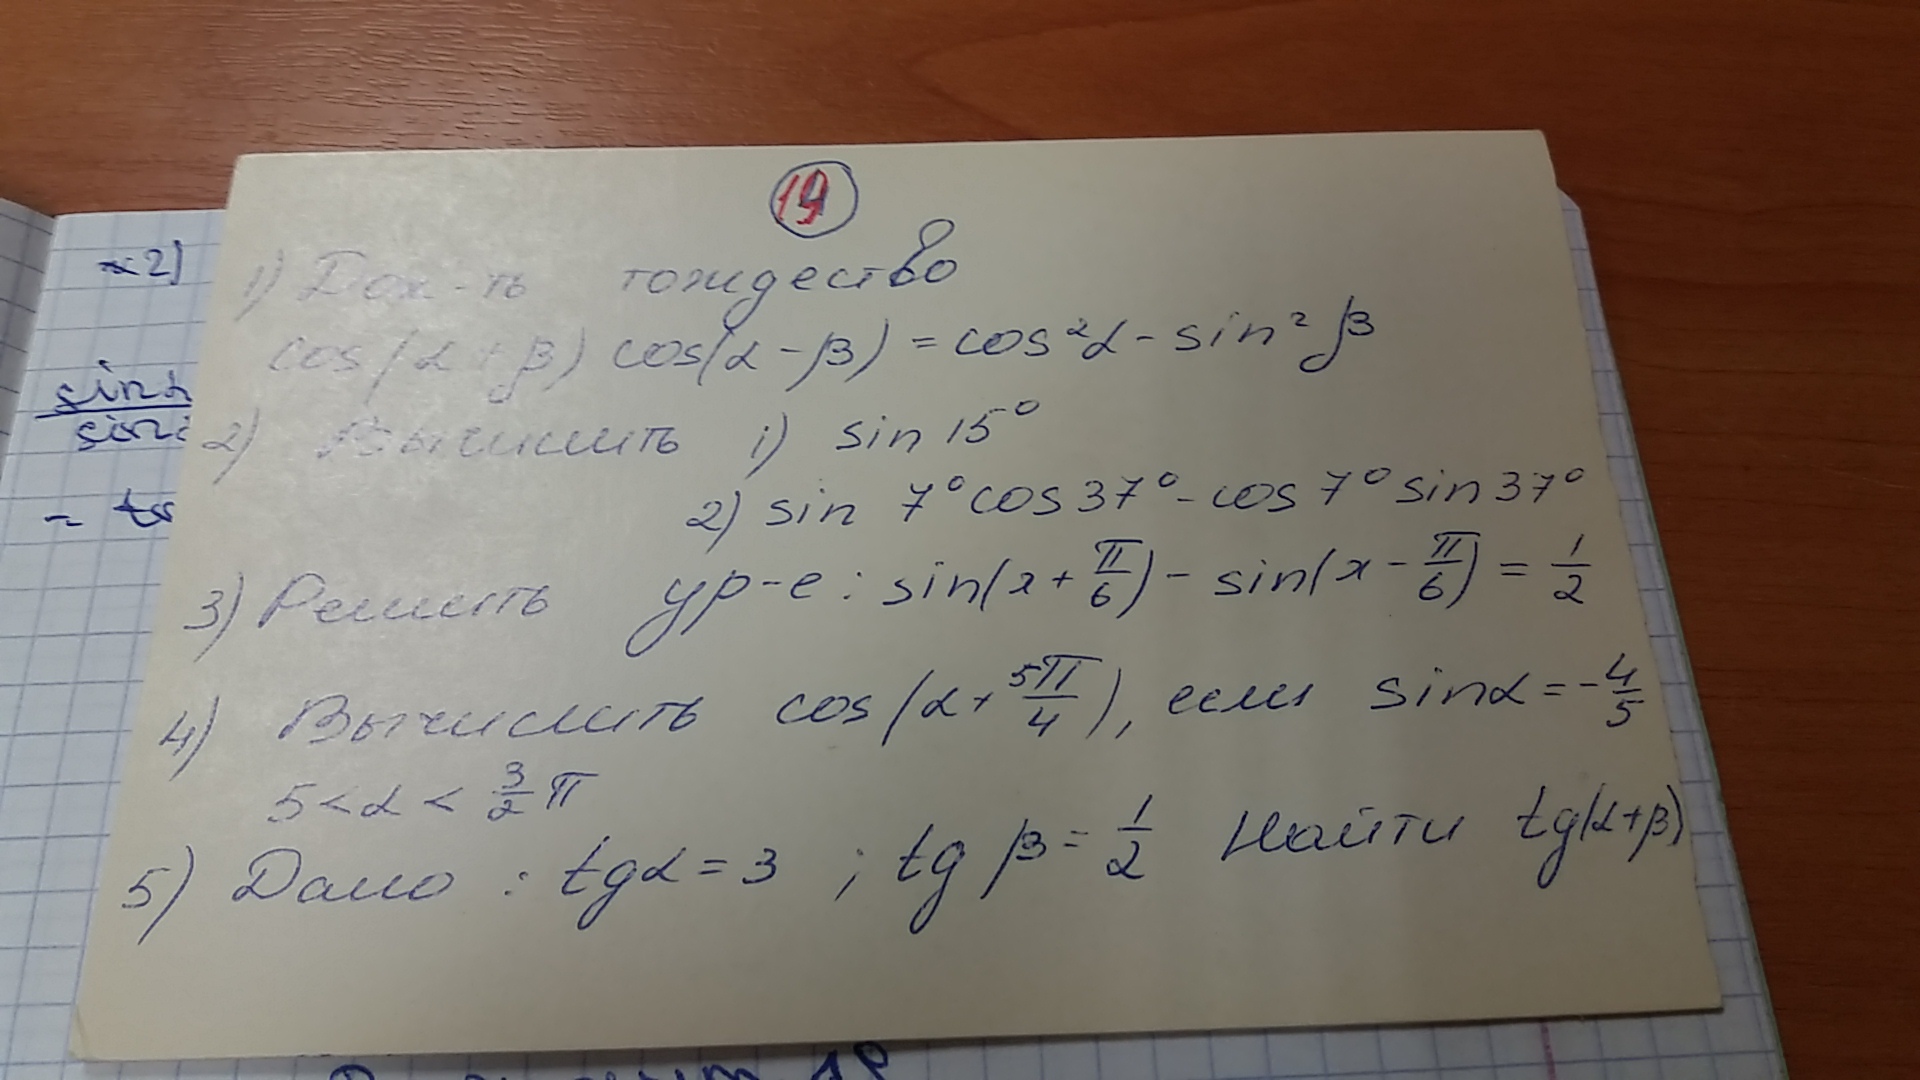 19
1) Док-ть тождество
cos(α+β) cos(α-β) = cos²α - sin²β
2) Вычислить 1) sin 15°
2) sin 7° cos 37° - cos 7° sin 37°
3) Решить ур-е: sin(x + π/6) - sin(x - π/6) = 1/2
4) Вычислить cos(α + 5π/4), если sinα = -4/5
5 < α < 3/2 π
5) Дано: tgα = 3; tg β = 1/2 Найти tg(α+β)
2)
sin
sin
=